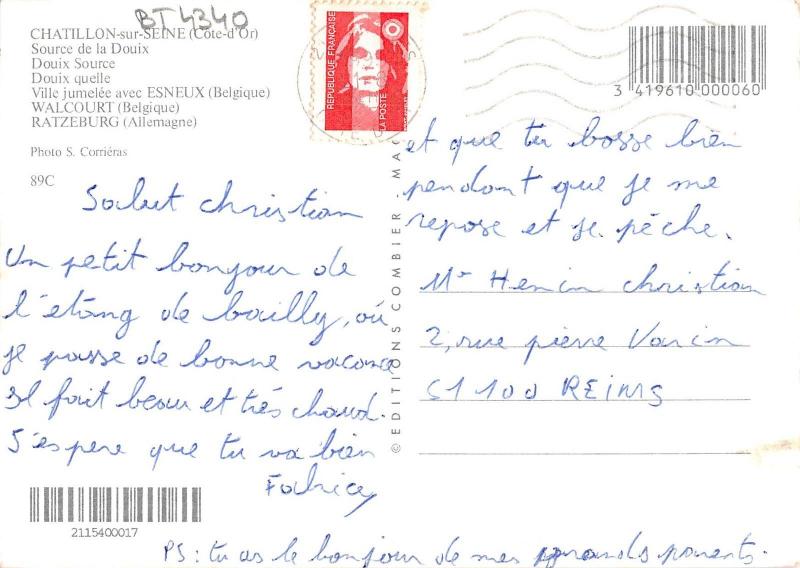 BT4340
CHATILLON-sur-SEINE (Côte-d'Or)
Source de la Douix
Douix Source
Douix quelle
Ville jumelée avec ESNEUX (Belgique)
WALCOURT (Belgique)
RATZEBURG (Allemagne)
Photo S. Corriéras
89C
Salut christian
Un petit bonjour de
l'étang de bailly, où
je passe de bonne vacance
Il fait beau et très chaud.
J'espere que tu va bien
Fabrice
2115400017
REPUBLIQUE FRANÇAISE
LA POSTE
© EDITIONS COMBIER MAC
3 419610 000060
et que tu bosse bien
pendant que je me
repose et je pêche.
Mr Henin christian
2, rue pierre Varin
51100 REIMS
PS: tu as le bonjour de mes grands parents.